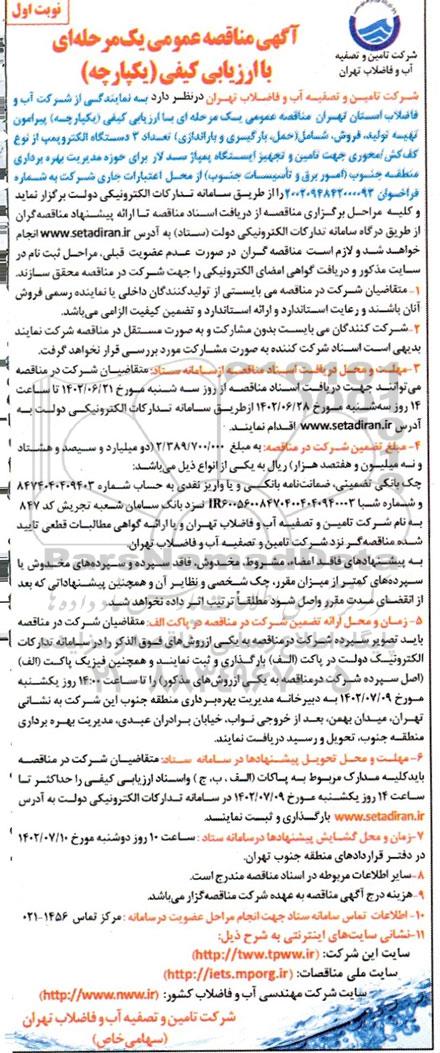 نوبت اول
شرکت تامین و تصفیه
آب و فاضلاب تهران
آگهی مناقصه عمومی یک مرحله‌ای
با ارزیابی کیفی (یکپارچه)
شرکت تامین و تصفیه آب و فاضلاب تهران درنظر دارد به نمایندگی از شرکت آب و
فاضلاب استان تهران مناقصه عمومی یک مرحله ای با ارزیابی کیفی (یکپارچه) پیرامون
تهیه تولید، فروش، شامل(حمل، بارگیری و باراندازی) تعداد ۳ دستگاه الکتروپمپ از نوع
کف‌کش/محوری جهت تامین و تجهیز ایستگاه پمپاژ سد لار برای حوزه مدیریت بهره برداری
منطقه جنوب (امور برق و تأسیسات جنوب) از محل اعتبارات جاری شرکت به شماره
فراخوان ۲۰۰۲۰۹۴۸۴۲۰۰۰۰۹۳ را از طریق سامانه تدارکات الکترونیکی دولت برگزار نماید
و کلیه مراحل برگزاری مناقصه از دریافت اسناد مناقصه تا ارائه پیشنهاد مناقصه‌گران
از طریق درگاه سامانه تدارکات الکترونیکی دولت (ستاد) به آدرس www.setadiran.ir انجام
خواهد شد و لازم است مناقصه گران در صورت عدم عضویت قبلی، مراحل ثبت نام در
سایت مذکور و دریافت گواهی امضای الکترونیکی را جهت شرکت در مناقصه محقق سازند.
۱- متقاضیان شرکت در مناقصه می بایستی از تولیدکنندگان داخلی یا نماینده رسمی فروش
آنان باشند و رعایت استاندارد و ارائه استاندارد و تضمین کیفیت الزامی می‌باشد.
۲- شرکت کنندگان می بایست بدون مشارکت و به صورت مستقل در مناقصه شرکت نمایند
بدیهی است اسناد شرکت کننده به صورت مشارکت مورد بررسی قرار نخواهد گرفت.
۳- مهلت و محل دریافت اسناد مناقصه از سامانه ستاد: متقاضیان شرکت در مناقصه
می‌توانند جهت دریافت اسناد مناقصه از روز سه شنبه مورخ ۱۴۰۲/۰۶/۲۱ تا ساعت
۱۴ روز سه‌شنبه مورخ ۱۴۰۲/۰۶/۲۸ ازطریق سامانه تدارکات الکترونیکی دولت به
آدرس www.setadiran.ir اقدام نمایند.
۴- مبلغ تضمین شرکت در مناقصه: به مبلغ ۲/۳۸۹/۷۰۰/۰۰۰ (دو میلیارد و سیصد و هشتاد
و نه میلیون و هفتصد هزار) ریال به یکی از انواع ذیل می‌باشد:
چک بانکی تضمینی، ضمانت‌نامه بانکی و یا واریز نقدی به حساب شماره ۸۴۷۴۰۴۰۴۰۹۴۰۳
و شماره شبا نزد بانک سامان شعبه تجریش کد ۸۴۷
به نام شرکت تامین و تصفیه آب و فاضلاب تهران و یا ارائه گواهی مطالبات قطعی تایید
شده مناقصه‌گر نزد شرکت تامین و تصفیه آب و فاضلاب تهران.
به پیشنهادهای فاقد امضاء، مشروط، مخدوش، فاقد سپرده و سپرده‌های مخدوش یا
سپرده‌های کمتر از میزان مقرر، چک شخصی و نظایر آن و همچنین پیشنهاداتی که بعد
از انقضای مدت مقرر واصل شود مطلقاً ترتیب اثر داده نخواهد شد.
۵- زمان و محل ارائه تضمین شرکت در مناقصه در پاکت الف: متقاضیان شرکت در مناقصه
باید تصویر سپرده شرکت درمناقصه به یکی ازروش‌های فوق الذکر را در سامانه تدارکات
الکترونیک دولت در پاکت (الف) بارگذاری و ثبت نمایند و همچنین فیزیک پاکت (الف)
(اصل سپرده شرکت درمناقصه به یکی ازروش‌های مذکور) را تا ساعت ۱۴:۰۰ روز یکشنبه
مورخ ۱۴۰۲/۰۷/۰۹ به دبیرخانه مدیریت بهره‌برداری منطقه جنوب این شرکت به نشانی
تهران، میدان بهمن، بعد از خروجی نواب، خیابان برادران عبدی، مدیریت بهره برداری
منطقه جنوب، تحویل و رسید دریافت نمایند.
۶- مهلت و محل تحویل پیشنهادها در سامانه ستاد: متقاضیان شرکت در مناقصه
باید کلیه مدارک مربوط به پاکات (الف ، ب، ج ) واسناد ارزیابی کیفی را حداکثر تا
ساعت ۱۴ روز یکشنبه مورخ ۱۴۰۲/۰۷/۰۹ در سامانه تدارکات الکترونیکی دولت به آدرس
www.setadiran.ir بارگذاری و ثبت نمایند.
۷-زمان و محل گشایش پیشنهادها درسامانه ستاد : ساعت ۱۰ روز دوشنبه مورخ ۱۴۰۲/۰۷/۱۰
در دفتر قراردادهای منطقه جنوب تهران.
۸-سایر اطلاعات مربوطه در اسناد مناقصه مندرج است.
۹-هزینه درج آگهی مناقصه به عهده شرکت مناقصه‌گزار می‌باشد.
۱۰- اطلاعات تماس سامانه ستاد جهت انجام مراحل عضویت در سامانه : مرکز تماس ۱۴۵۶-۰۲۱
۱۱-نشانی سایت‌های اینترنتی به شرح ذیل:
سایت این شرکت: (http://tww.tpww.ir)
سایت ملی مناقصات: (http://iets.mporg.ir)
سایت شرکت مهندسی آب و فاضلاب کشور: (http://www.nww.ir)
شرکت تامین و تصفیه آب و فاضلاب تهران
(سهامی خاص)